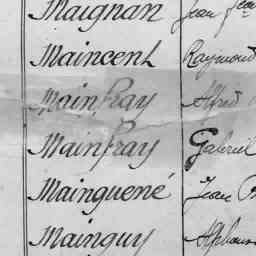 Maignan Jean
Maincent Raymond
Mainfray Alfred
Mainfray Gabriel
Mainguené Jean
Mainguy Alphonse